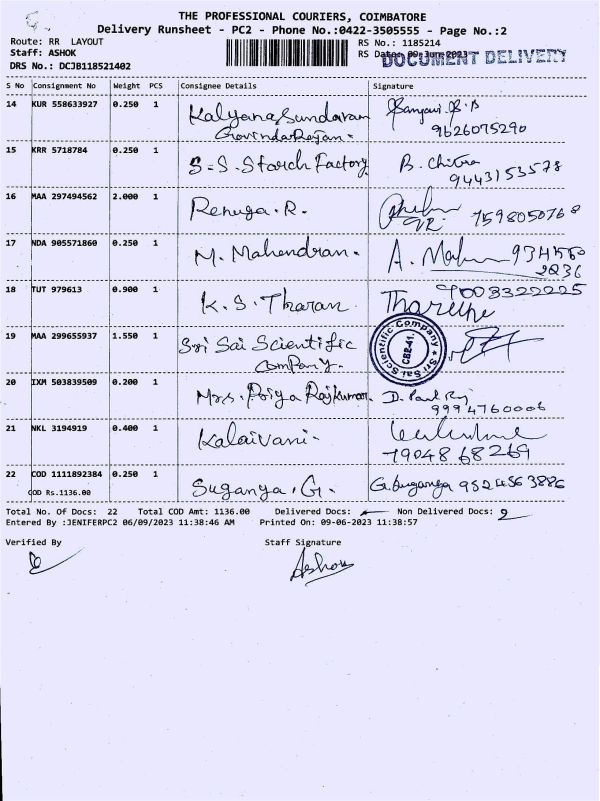 THE PROFESSIONAL COURIERS, COIMBATORE
Delivery Runsheet - PC2 - Phone No.:0422-3505555 - Page No.:2
Route: RR LAYOUT
Staff: ASHOK
DRS No.: DCJB118521402
RS No.: 1185214
RS Date: 09-June-2023
DOCUMENT DELIVERY
S No Consignment No Weight PCS Consignee Details Signature
14 KUR 558633927 0.250 1 Kalyana Sundaram
Govindarajan. 9626075290
15 KRR 5718784 0.250 1 S-S. Starch Factory B. Chitra
9443153578
16 MAA 297494562 2.000 1 Renuga. R. 7598050768
17 NDA 905571860 0.250 1 M. Mahendran. A.
18 TUT 979613 0.900 1 K. S. Tharan 9003322225
19 MAA 299655937 1.550 1 Sri Sai Scientific
Company. Sri Sai Scientific Company CBE-41.
20 IXM 503839509 0.200 1 Mrs. Priya Rajkumar. D. Paul Raj
9994760006
21 NKL 3194919 0.400 1 Kalaivani.
7904868269
22 COD 1111892384 0.250 1 Suganya. G. G. Suganya 9524563886
COD Rs.1136.00
Total No. Of Docs: 22 Total COD Amt: 1136.00 Delivered Docs: Non Delivered Docs: 2
Entered By :JENIFERPC2 06/09/2023 11:38:46 AM Printed On: 09-06-2023 11:38:57
Verified By Staff Signature
Ashok